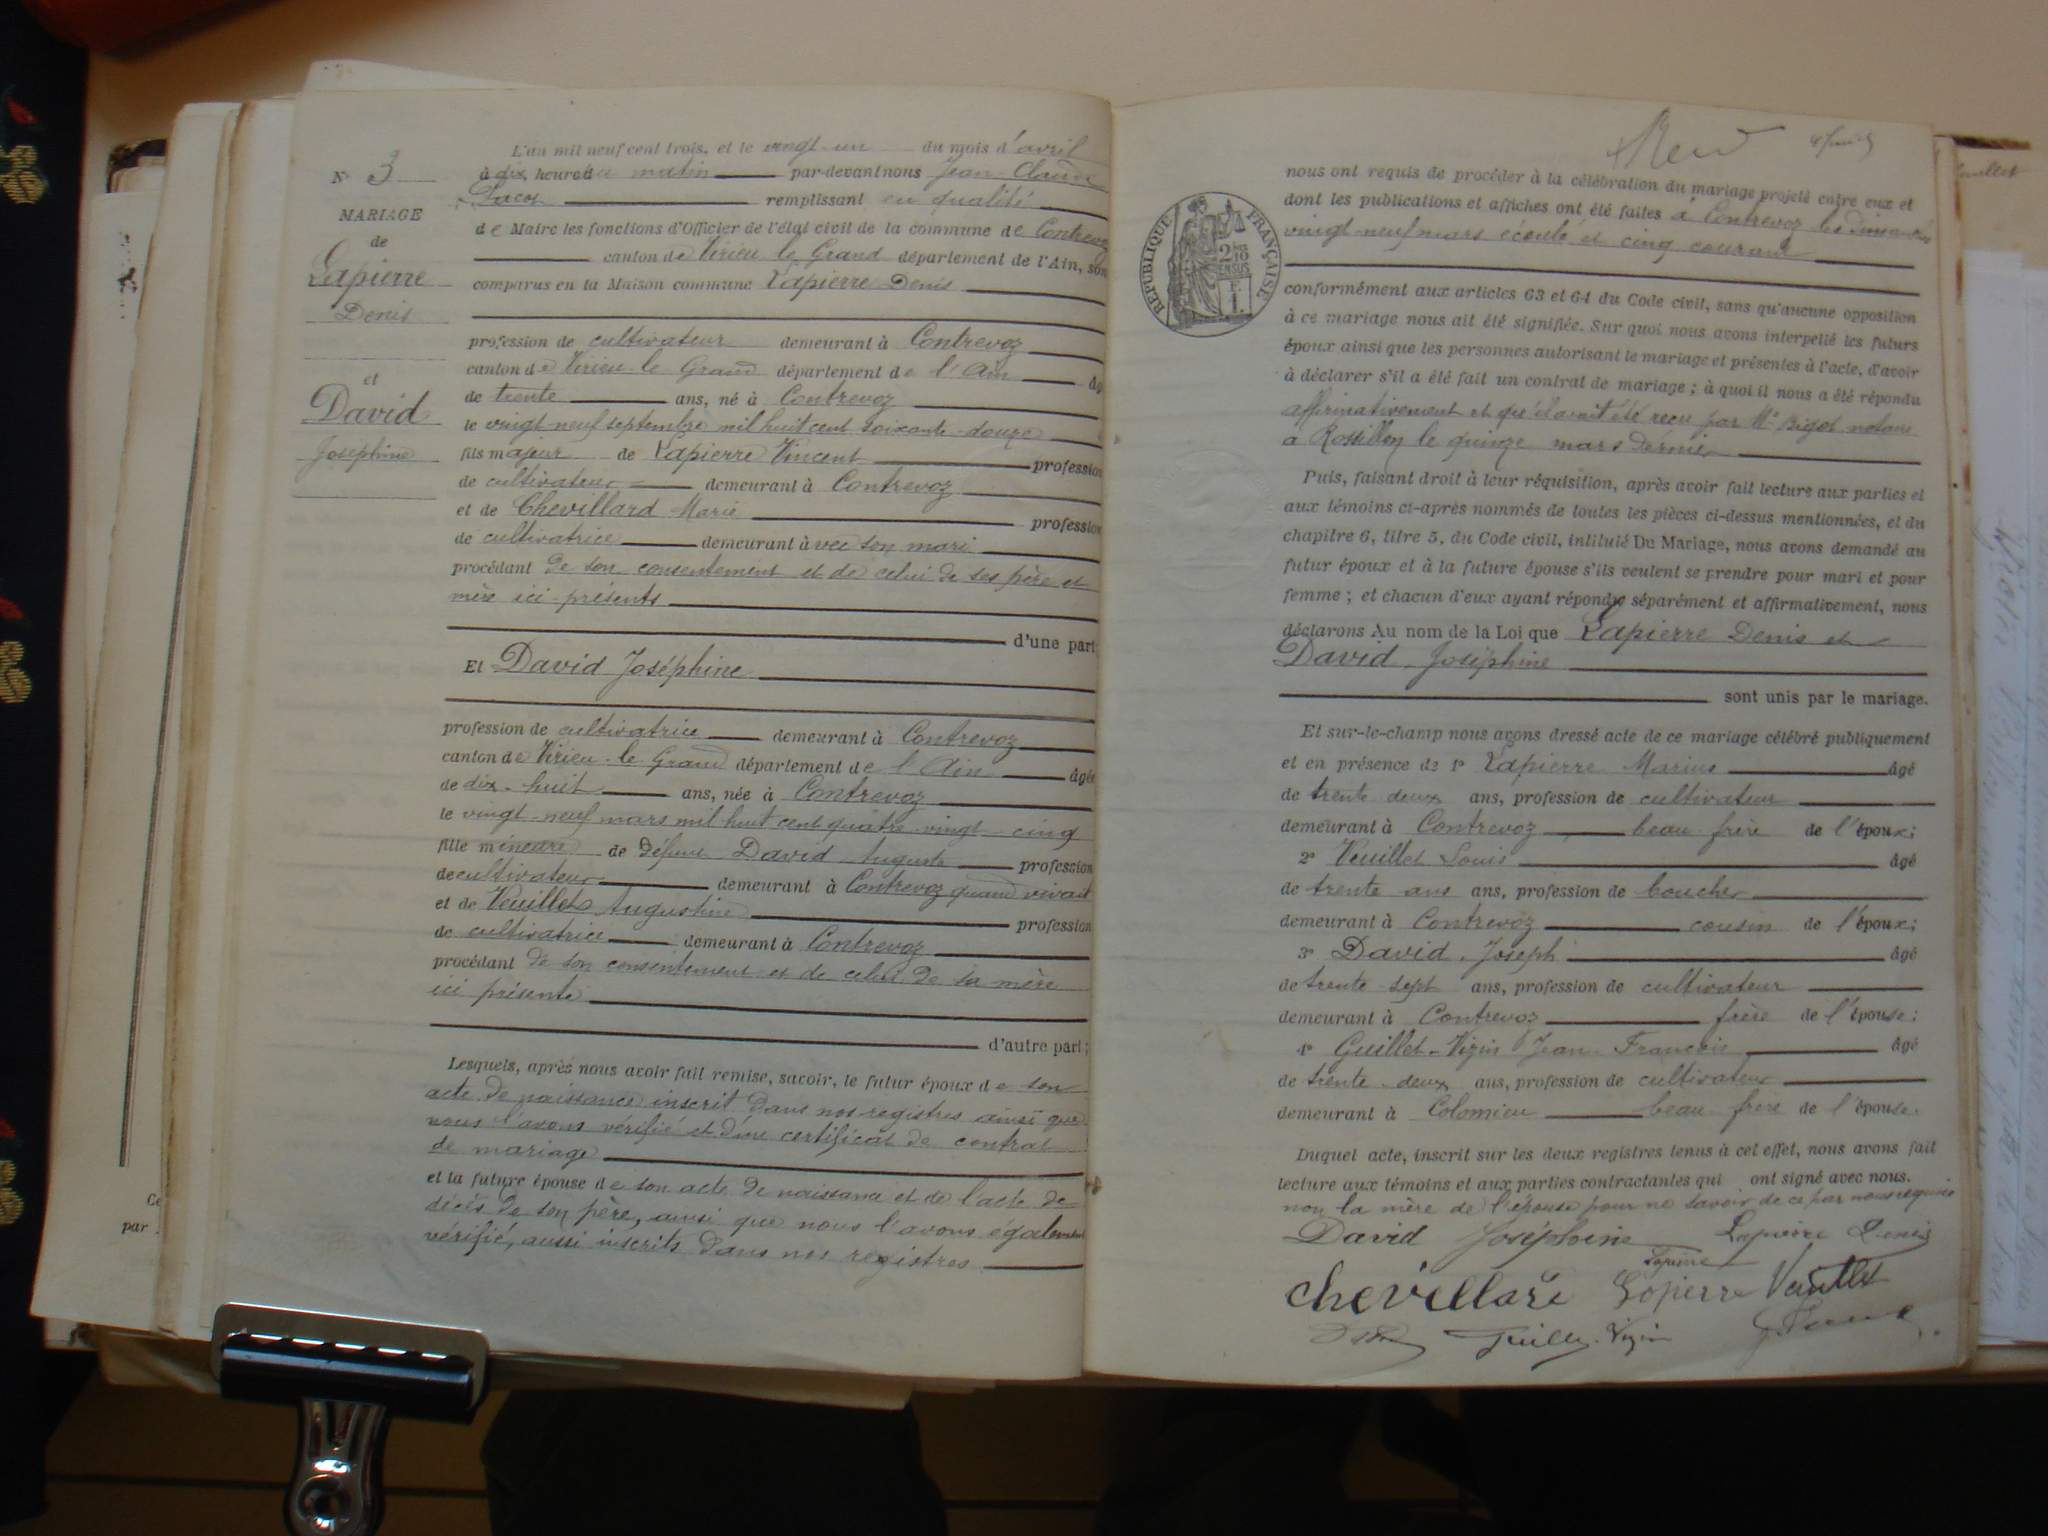 N° 3
MARIAGE
de
Lapierre
Denis
et
David
Joséphine
L'an mil neuf cent trois, et le vingt-un du mois d'avril
à dix heures du matin par-devant nous Jean Claude
remplissant en qualité
de Maire les fonctions d'Officier de l'état civil de la commune de Contrevoz
canton de Virieu le Grand département de l'Ain, son
comparus en la Maison commune Lapierre Denis
profession de cultivateur demeurant à Contrevoz
canton de Virieu-le Grand département de l'Ain âg
de trente ans, né à Contrevoz
le vingt-neuf septembre mil huit cent soixante-douze
fils majeur de Lapierre Vincent profession
de cultivateur demeurant à Contrevoz
et de Chevillard Marie profession
de cultivatrice demeurant avec son mari
procédant de son consentement et de celui de ses père et
mère ici-présents
d'une part
Et David Joséphine
profession de cultivatrice demeurant à Contrevoz
canton de Virieu-le Grand département de l'Ain âgée
de dix-huit ans, née à Contrevoz
le vingt-neuf mars mil huit cent quatre-vingt-cinq
fille mineure de défunt David Auguste profession
de cultivateur demeurant à Contrevoz quand vivait
et de Veuillet Augustine profession
de cultivatrice demeurant à Contrevoz
procédant de son consentement et de celui de sa mère
ici présente
d'autre part;
Lesquels, après nous avoir fait remise, savoir, le futur époux de son
acte de naissance inscrit dans nos registres ainsi que
nous l'avons vérifié et d'un certificat de contrat
de mariage
et la future épouse de son acte de naissance et de l'acte de
décès de son père, ainsi que nous l'avons également
vérifié, aussi inscrits dans nos registres
RÉPUBLIQUE FRANÇAISE
2/10
EN SUS
F.
1.
nous ont requis de procéder à la célébration du mariage projeté entre eux et
dont les publications et affiches ont été faites à Contrevoz les dimanches
vingt-neuf mars écoulé et cinq courant
conformément aux articles 63 et 64 du Code civil, sans qu'aucune opposition
à ce mariage nous ait été signifiée. Sur quoi nous avons interpellé les futurs
époux ainsi que les personnes autorisant le mariage et présentes à l'acte, d'avoir
à déclarer s'il a été fait un contrat de mariage; à quoi il nous a été répondu
affirmativement et qu'il avait été reçu par Me Bigot notaire
à Rossillon le quinze mars dernier
Puis, faisant droit à leur réquisition, après avoir fait lecture aux parties et
aux témoins ci-après nommés de toutes les pièces ci-dessus mentionnées, et du
chapitre 6, titre 5, du Code civil, intitulé Du Mariage, nous avons demandé au
futur époux et à la future épouse s'ils veulent se prendre pour mari et pour
femme; et chacun d'eux ayant répondu séparément et affirmativement, nous
déclarons Au nom de la Loi que Lapierre Denis et
David Joséphine
sont unis par le mariage.
Et sur-le-champ nous avons dressé acte de ce mariage célébré publiquement
et en présence de 1° Lapierre Marius âgé
de trente deux ans, profession de cultivateur
demeurant à Contrevoz beau-frère de l'époux;
2° Veuillet Louis âgé
de trente ans ans, profession de boucher
demeurant à Contrevoz cousin de l'époux;
3° David Joseph âgé
de trente-sept ans, profession de cultivateur
demeurant à Contrevoz frère de l'épouse;
4° Guillet-Vizin Jean-François âgé
de trente-deux ans, profession de cultivateur
demeurant à Colomieu beau frère de l'épouse.
Duquel acte, inscrit sur les deux registres tenus à cet effet, nous avons fait
lecture aux témoins et aux parties contractantes qui ont signé avec nous.
non la mère de l'épouse pour ne savoir de ce par nous requis
David Joséphine Lapierre Denis
Lapierre
Chevillard Lapierre Veuillet
Guillet-Vizin